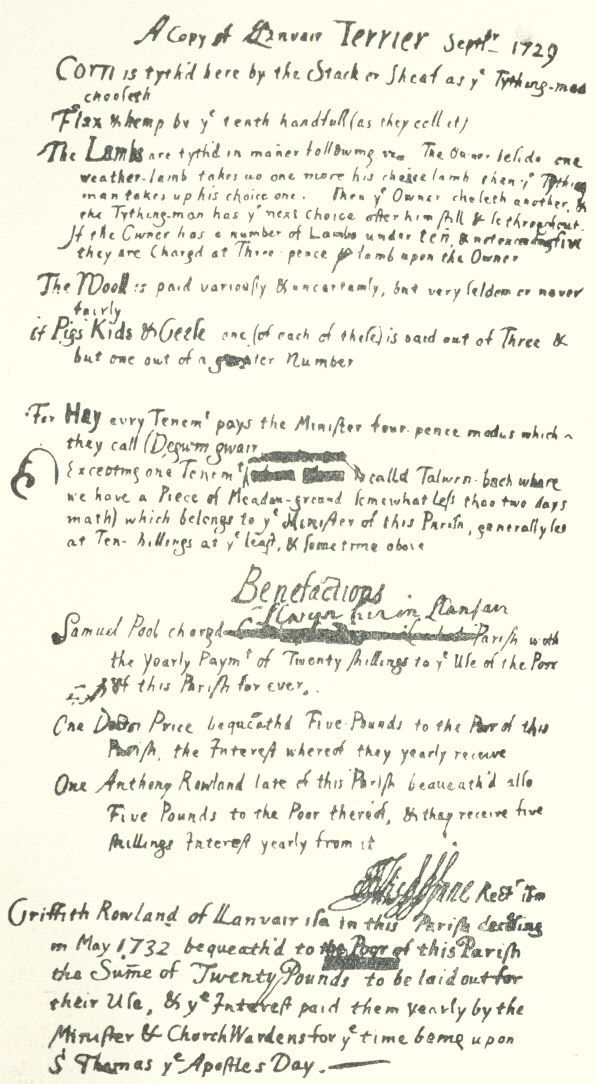 A Copy of Lanvair Terrier Septbr 1729
Corn is tyth'd here by the Stack or Sheaf as ye Tything-man
chooseth
Flax & hemp by ye tenth handfull (as they call it)
The Lambs are tyth'd in mañer following viz. The Owner beside one
weather-lamb takes up one more his choice lamb then ye Tything
man takes up his choice one. Then ye Owner cheseth another, &
the Tything-man has ye next choice after him still & so throughout.
If the Owner has a number of Lambs under ten, & not exceeding five
they are Chargd at Three pence lamb upon the Owner
The Wool is paid variously & uncertamly, but very seldem or never
fairly
if Pigs Kids & Geese one (of each of these) is paid out of Three &
but one out of a greater Number
For Hay evry Tenemt pays the Minister four-pence modus which
they call (Degwm gwair
Excepting one Tenemt calld Talwrn-bach where
we have a Piece of Meadow-ground (somewhat Less than two days
math) which belongs to ye Minister of this Parish, generally les
at Ten-shillings at ye least, & sometime above
Benefactions
in Llanfair
Samuel Pool chargd Parish with
the yearly Paymt of Twenty shillings to ye Use of the Poor
of this Parish for ever.
One Doctor Price bequeathd Five-Pounds to the Poor of this
Parish, the Interest whereof they yearly receive
One Anthony Rowland late of this Parish bequeath'd also
Five Pounds to the Poor thereof, & they receive five
shillings Interest yearly from it
Rectr ibm
Griffith Rowland of Llanvair isa in this Parish deceasing
in May 1732 bequeath'd to the Poor of this Parish
the Sum̃e of Twenty Pounds to be laid out for
their Use, & ye Interest paid them yearly by the
Minister & Church Wardens for ye time being upon
St Thomas ye Apostles Day.